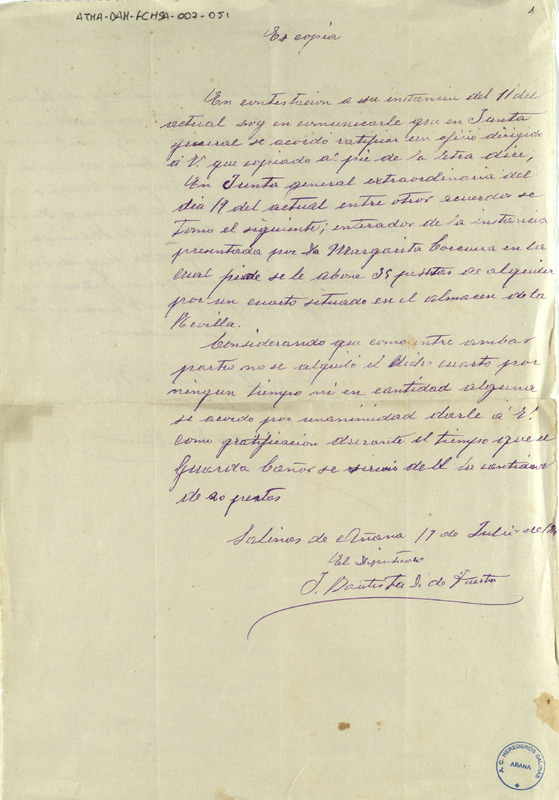 ATHA-DAH-FCHSA-002-051
1
Es copia
En contestacion a su instancia del 11 del
actual soy en comunicarle que en Junta
general se acordó ratificar un oficio dirigido
á V. que copiado al pie de la letra dice,
En Junta general extraordinaria del
dia 19 del actual entre otros acuerdos se
tomo el siguiente; enterados de la instancia
presentada por Da Margarita Corcuera en la
cual pide se le abone 35 pesetas de alquiler
por un cuarto situado en el almacen de la
Revilla.
Considerando que como entre ambas
partes no se alquiló el dicho cuarto por
ningun tiempo ni en cantidad alguna
se acordo por unanimidad darle á V.
como gratificacion durante el tiempo que el
Guarda Cañas se sirvio dell la cantidad
de 20 pesetas
Salinas de Añana 19 de Julio de
El Diputado
J. Bautista de
A. C. HEREDEROS SALINAS
AÑANA